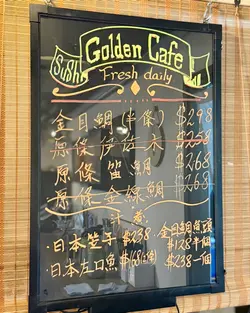 Golden Cafe
Sushi
Fresh daily
金目鯛(半條) $298
原條伊佐木 $258
原條笛鯛 $268
原條金線鯛 $268
汁煮
・日本笠子 $238
金目鯛魚頭 $128半個
・日本左口魚 $168
$238一個